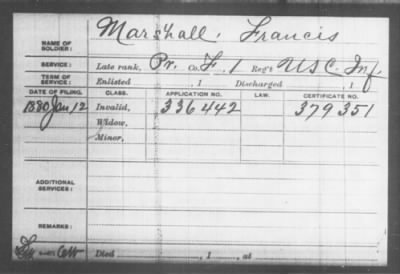 NAME OF SOLDIER: Marshall, Francis
SERVICE: Late rank, Pr. Co. F, 1 Reg't U.S.C. Inf.
TERM OF SERVICE: Enlisted , 1 Discharged , 1
DATE OF FILING. CLASS. APPLICATION NO. LAW. CERTIFICATE NO.
1880 Jan 12 Invalid, 336442 379351
Widow,
Minor,
ADDITIONAL SERVICES:
REMARKS:
Died , 1 , at